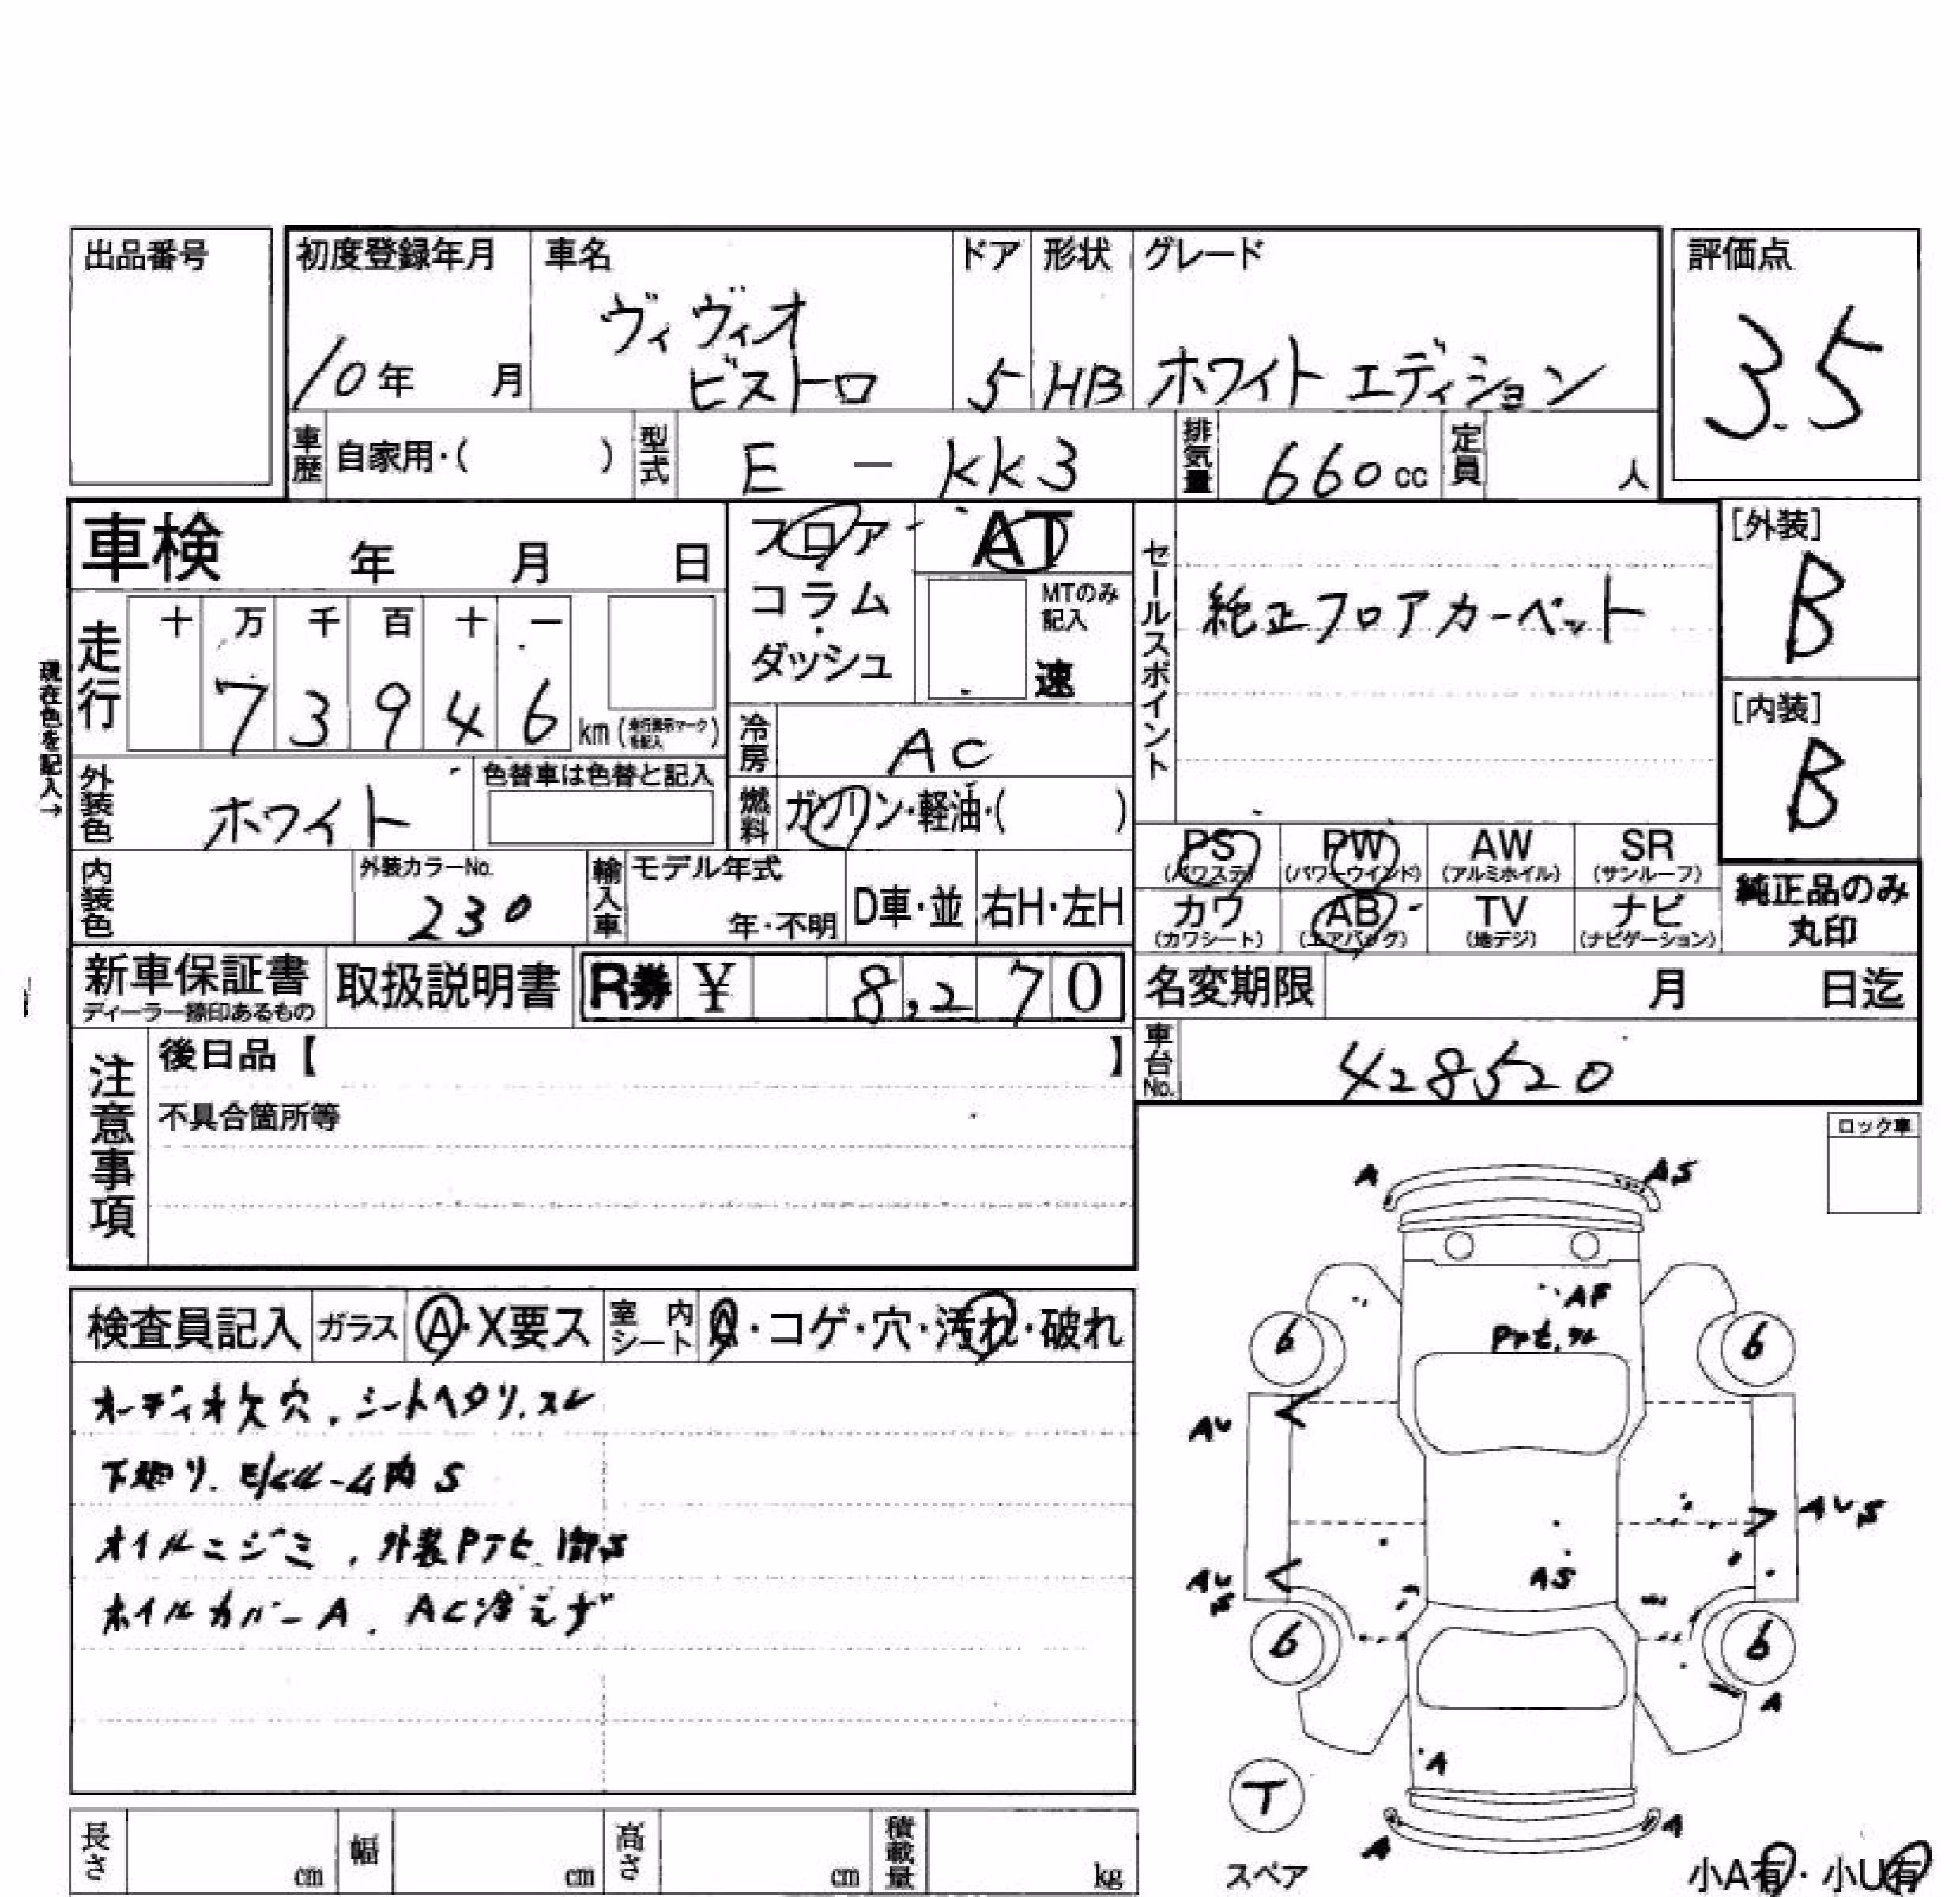 出品番号
初度登録年月 車名 ドア 形状 グレード 評価点
ヴィヴィオ
10年 月 ビストロ 5 HB ホワイトエディション 3.5
車歴 自家用・( ) 型式 E - KK3 排気量 660cc 定員 人
車検 年 月 日 フロア AT
[外装]
B
コラム MTのみ記入
ダッシュ 速
セールスポイント 純正フロアカーペット
現在色を記入→
走行 十 万 千 百 十 一
7 3 9 4 6 km
冷房 AC
[内装]
B
外装色 ホワイト 色替車は色替と記入
燃料 ガソリン・軽油・( )
PS PW AW SR
(パワステ) (パワーウインド) (アルミホイル) (サンルーフ)
内装色 外装カラーNo. 230 輸入車 モデル年式 年・不明 D車・並 右H・左H
カワ AB TV ナビ
(カワシート) (エアバッグ) (地デジ) (ナビゲーション)
純正品のみ
丸印
新車保証書 取扱説明書 R券 ¥ 8,270
ディーラー捺印あるもの
名変期限 月 日迄
車台No. 428520
注意事項 後日品【 】
不具合箇所等
ロック車
検査員記入 ガラス A・X要ス 室内シート A・コゲ・穴・汚れ・破れ
オーディオ欠穴、シートヘタリ、スレ
下廻り、E/ルーム内S
オイルニジミ、外装
ホイルカバーA、AC冷えず
A AS
AF
6 6
AU
AUS
AU
AS
6 6
A
A
T
A A
スペア
小A有・小U有
長さ cm 幅 cm 高さ cm 積載量 kg